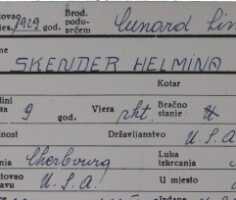 1929 god. Brod. podu- zećem Cunard Lin
me
SKENDER HELMINA
Kotar
9 god. Vjera rkt. Bračno stanje
nost Državljanstvo U.S.A.
Cherbourg Luka iskrcanja
tovao U.S.A. U mjesto